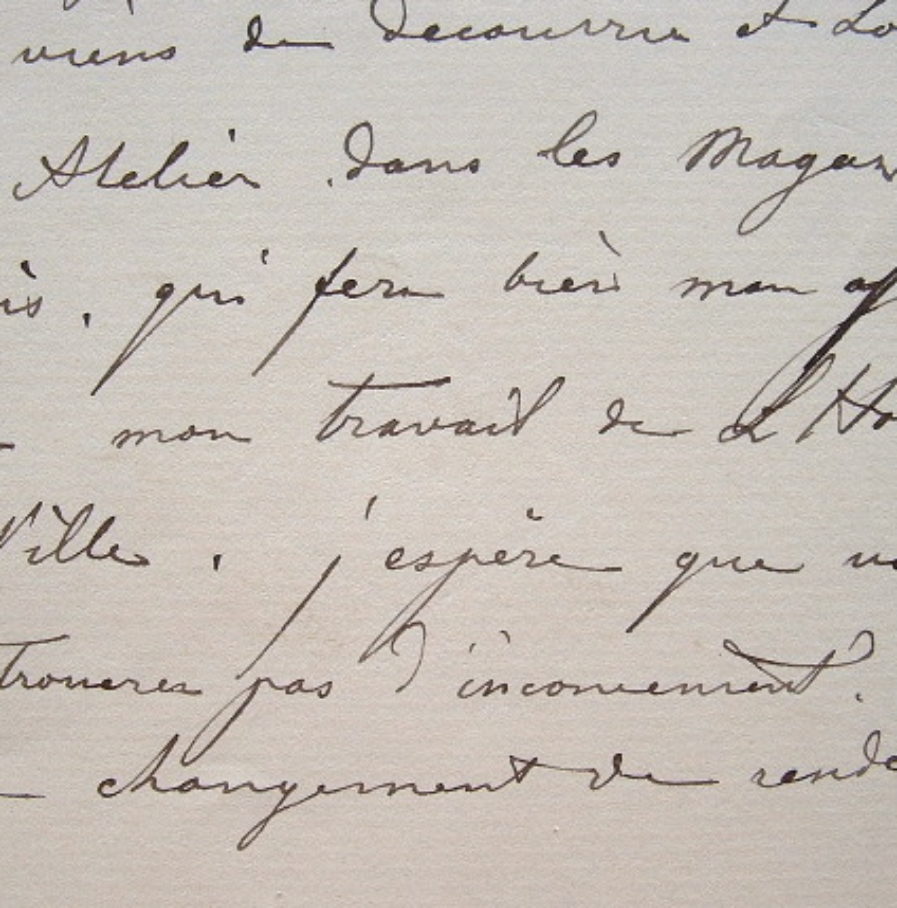 viens de decouvrir et Lo
Atelier dans les Magas
is. qui fera bien mon af
mon travail de L'Ho
Ville. j'espère que vo
trouverez pas d'inconvenient.
changement de rende